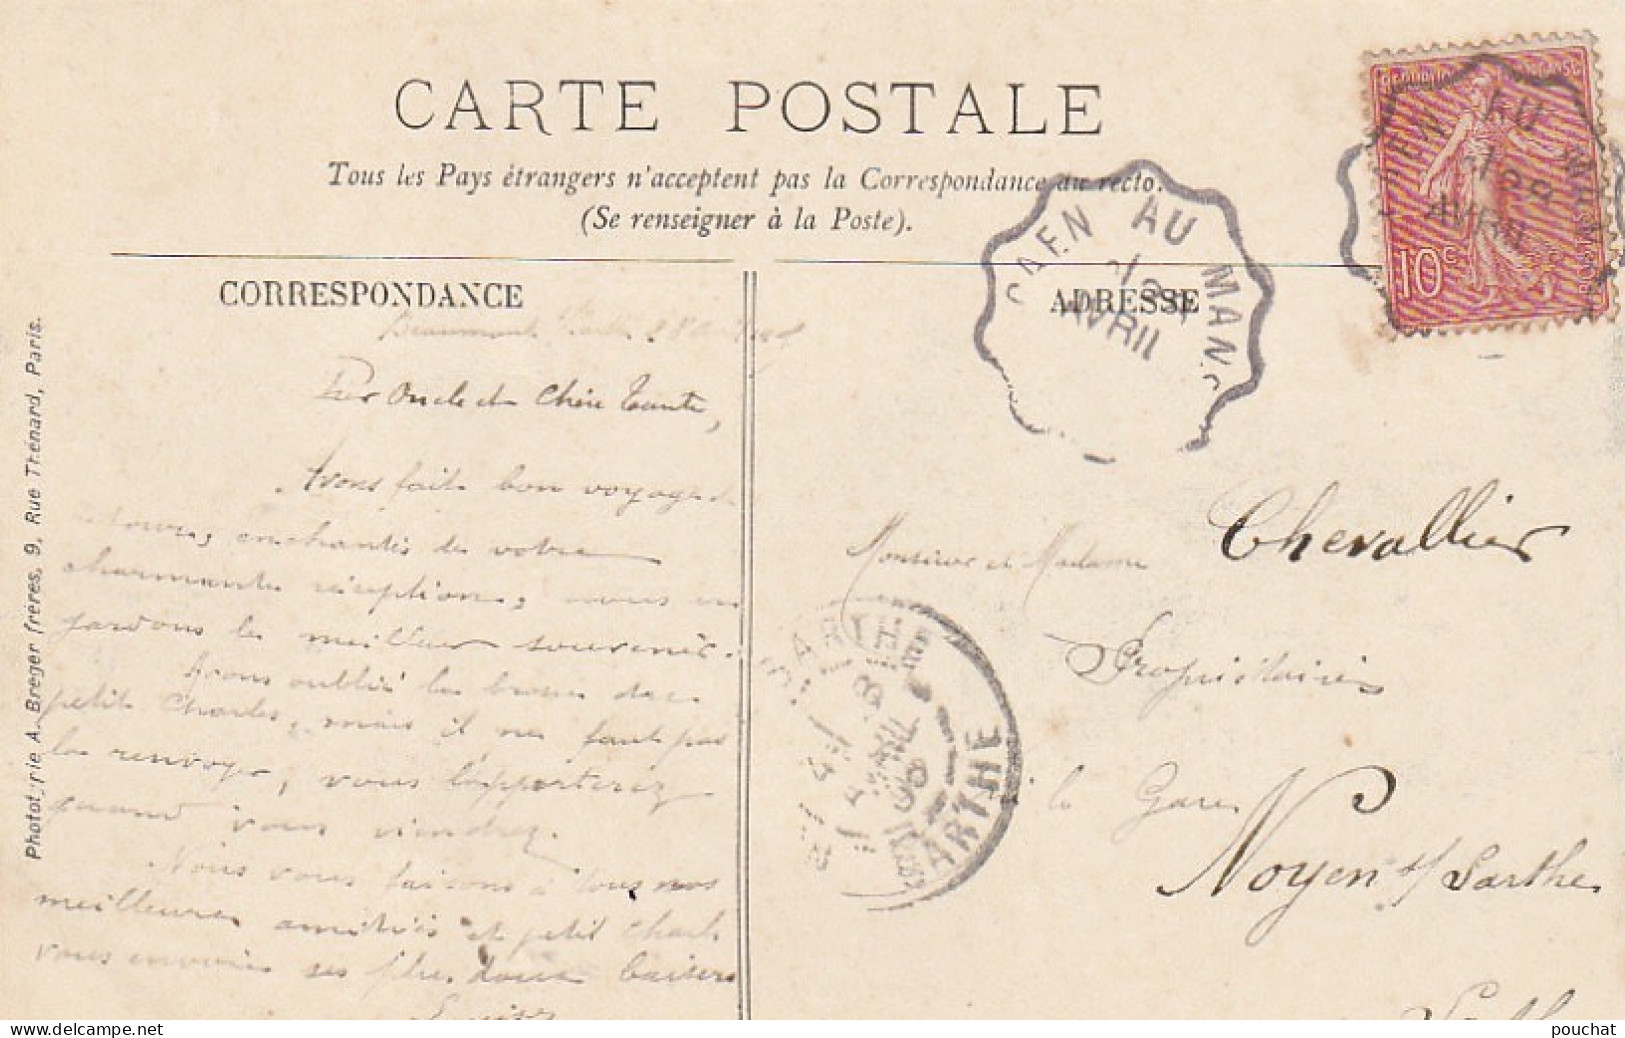 CARTE POSTALE
Tous les Pays étrangers n'acceptent pas la Correspondance au recto.
(Se renseigner à la Poste).
CORRESPONDANCE
Oncle et Chère Tante,
Avons fait bon voyage de
retour, enchantés de votre
charmante réception, nous en
gardons le meilleur souvenir.
Avons oublié la brosse de
petit Charles, mais il ne faut pas
la renvoyer, vous l'apporterez
quand vous viendrez.
Nous vous faisons à tous nos
meilleures amitiés et petit Charles
vous envoie ses plus doux baisers
Phototypie A. Breger frères, 9, Rue Thénard, Paris.
ADRESSE
CAEN AU MANS
AVRIL
10c
POSTES
CAEN AU MANS
AVRIL
Monsieur et Madame Chevallier
Propriétaires
à la Gare
Noyen s/ Sarthe
SARTHE
AVRIL
08
SARTHE
pouchat